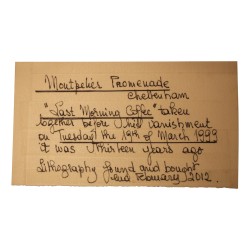 Montpelier Promenade
Cheltenham
"Last Morning Coffee" taken
together before banishment
on Tuesday the 19th of March 1999
it was thirteen years ago
Lithography found and bought
end February 2012.